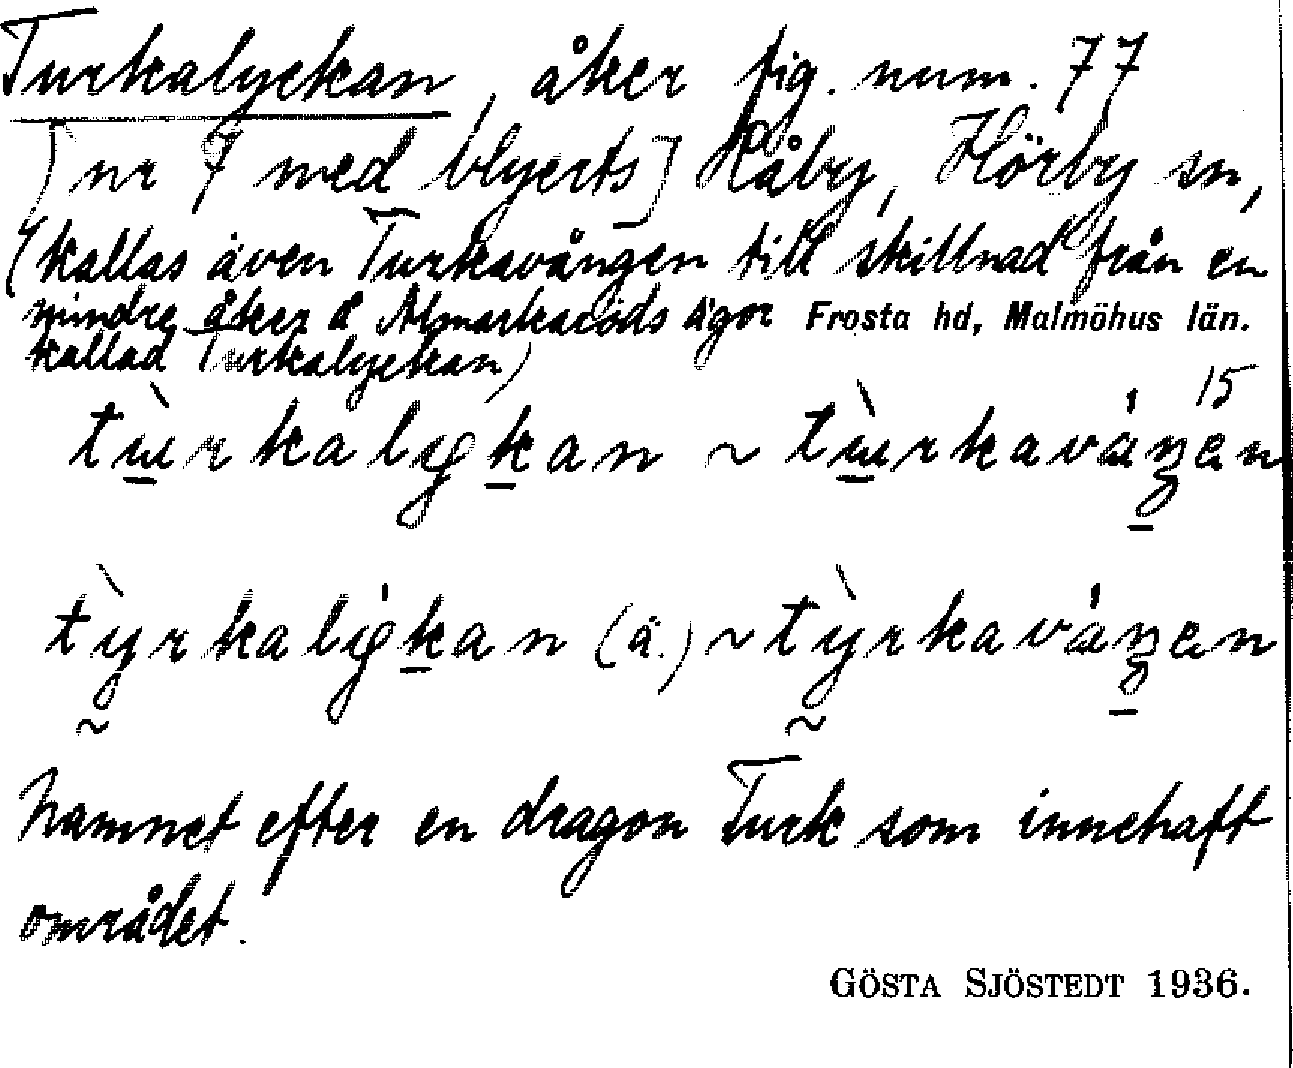 Turkalyckan, åker fig. num. 77
[nr 7 med blyerts] Håby, Hörby sn,
(kallas även Turkavången till skillnad från en
mindre åker å Almarkaröds ägor Frosta hd, Malmöhus län.
kallad Turkalyckan)
15
tùrkalykan ~ tùrkaváŋen
tỳrkalýkan (ä.) ~ tỳrkaváŋen
Namnet efter en dragon Turk som innehaft
området.
GÖSTA SJÖSTEDT 1936.